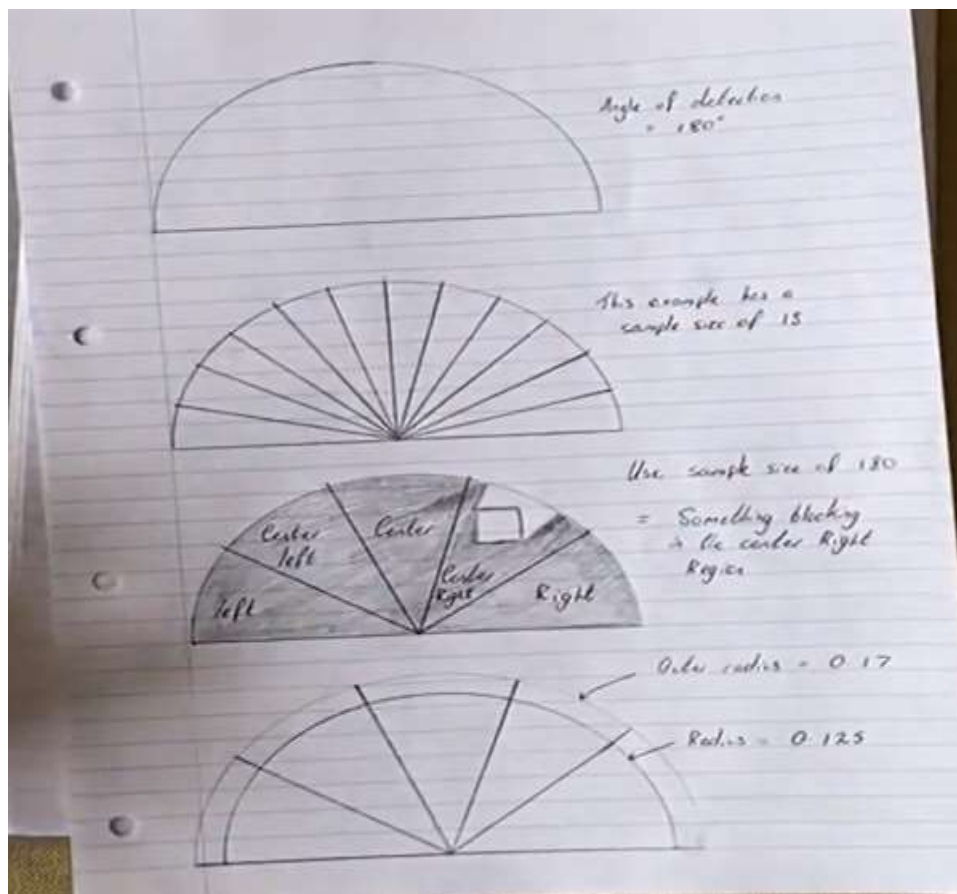 Angle of detection
= 180°
This example has a
sample size of 15
Use sample size of 180
= Something blocking
in the center Right
Region
Center
left
Center
Center
Right
left
Right
Outer radius = 0.17
Radius = 0.125